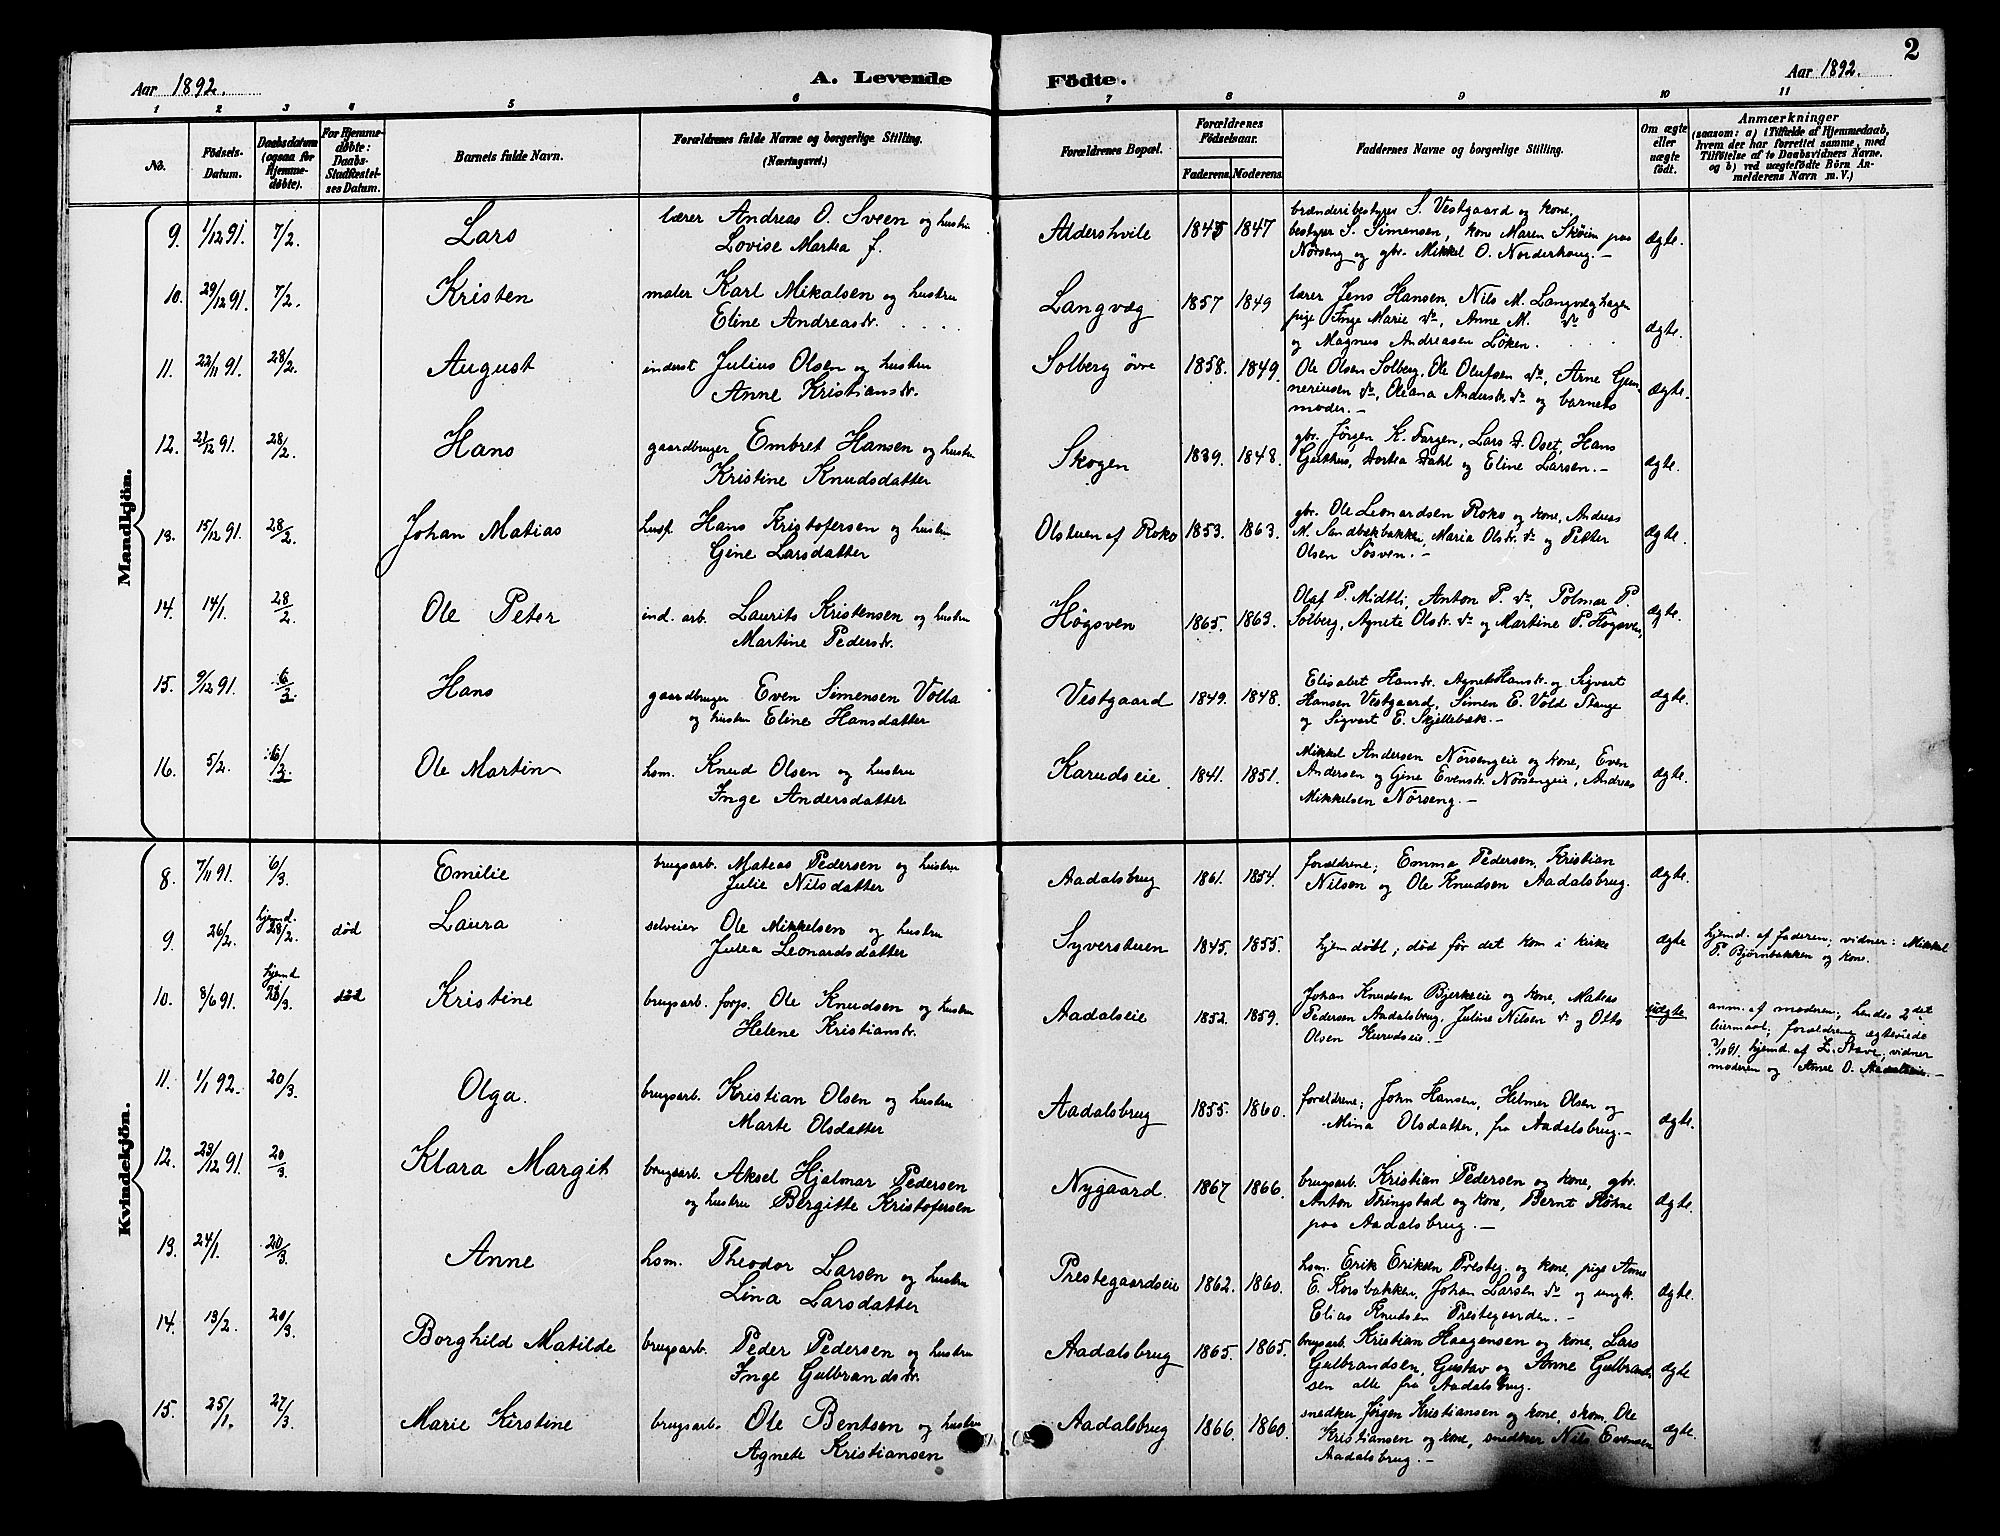 2
Aar 1892.
A. Levende Födte.
Aar 1892.
1 2 3 4 5 6 7 8 9 10 11
No.
Födsels-Datum.
Daabsdatum (ogsaa for Hjemmedöbte).
For Hjemmedöbte: Daabs-Stadfæstelses Datum.
Barnets fulde Navn.
Forældrenes fulde Navne og borgerlige Stilling. (Næringsvei.)
Forældrenes Bopæl.
Forældrenes Födselsaar.
Faderens. Moderens.
Faddernes Navne og borgerlige Stilling.
Om ægte eller uægte født.
Anmærkninger
(saasom: a) i Tilfælde af Hjemmedaab, hvem der har forrettet samme, med Tilföielse af to Daabsvidners Navne, og b) ved uægtefödte Börn Anmelderens Navn m. V.)
Mandkjön.
9. 1/12 91. 7/2. Lars
lærer Andreas O. Sveen og hustru
Lovise Martea f.
Aldershvile 1845 1847
brænderibestyrer S. Vestgaard og kone,
bestyrer S. Simensen, kone Maren Skøien paa
Nørseng og gbr. Mikkel O. Norderhaug.-
ægte.
10. 29/12 91. 7/2. Kristen
maler Karl Mikalsen og hustru
Eline Andreasdr.
Langvæg 1857 1849
lærer Jens Hansen, Nils M. Langvæghagen
pige Inge Marie do, Anne M. do
og Magnus Andreasen Løken.
ægte.
11. 22/11 91. 28/2. August
inderst Julius Olsen og hustru
Anne Kristiansdr.
Solberg øvre 1858. 1849.
Ole Olsen Solberg, Ole Olufsen do, Arne Gun-
neriusen do, Oleana Andersdr. do og barnets
moder.-
ægte.
12. 21/12 91. 28/2. Hans
gaardbruger Embret Hansen og hustru
Kristine Knudsdatter
Skogen 1839. 1848.
gbr. Jørgen K. Fargen, Lars D. Oset, Hans
Guthus, Dortea Dahl og Eline Larsen.-
ægte.
13. 15/12 91. 28/2. Johan Matias
husf. Hans Kristofersen og hustru
Gine Larsdatter
Olstuen af Roko 1853. 1863.
gbr. Ole Leonardsen Roko og kone, Andreas
M. Sandbækbakken, Maria Olsdr. do og Petter
Olsen Søsven.-
ægte.
14. 14/1. 28/2. Ole Peter
ind. arb. Laurits Kristensen og hustru
Martine Pedersdr.
Høgsven 1865. 1863.
Olaf P. Midtli, Anton P. do, Polmar P.
Solberg, Agnete Olsdr. do og Martine P. Høgsven,
ægte.
15. 9/12 91. 6/3. Hans
gaardbruger Even Simensen Volla
og hustru Eline Hansdatter
Vestgaard 1849. 1848.
Elisabet Hansdr. Agnete Hansdr. og Sigvart
Hansen Vestgaard, Simen E. Vold Stange
og Sigvart E. Skjellebæk.-
ægte.
16. 5/2. 6/3. Ole Martin
hsm. Knud Olsen og hustru
Inge Andersdatter
Karudseie 1841. 1851.
Mikkel Andersen Nørsengeie og kone, Even
Andersen og Gine Evensdr. Nørsengeie, Andreas
Mikkelsen Nørseng.-
ægte.
Kvindekjön.
8. 7/11 91. 6/3. Emilie
brugsarb. Mateas Pedersen og hustru
Julie Nilsdatter
Aadalsbrug 1861. 1854.
forældrene; Emma Pedersen, Kristian
Nilsen og Ole Knudsen Aadalsbrug.
ægte.
9. 26/2. hjemd. 28/2. død Laura
selveier Ole Mikkelsen og hustru
Julea Leonardsdatter
Syverstuen 1845. 1855.
hjemdøbt; død før det kom i kirke
ægte
hjemd. af faderen; vidner: Mikkel
P. Bjørnbakken og kone.
10. 8/6 91. hjemd 28/3. død Kristine
brugsarb. forp. Ole Knudsen og hustru
Helene Kristiansdr.
Aadalseie 1852. 1859.
Johan Knudsen Bjerkeeie og kone, Mateas
Pedersen Aadalsbrug, Juline Nilsen do og Otto
Olsen Kurudseie.-
uægte
anm. af moderen; hendes 2det
leiermaal; forældrene ægteviede
3/10 91. hjemd. af L. Stave; vidner
moderen og Anne O. Aadalseie.-
11. 1/1 92. 20/3. Olga.
brugsarb. Kristian Olsen og hustru
Marte Olsdatter
Aadalsbrug 1855. 1860.
forældrene; John Hansen, Helmer Olsen og
Mina Olsdatter, fra Aadalsbrug.-
ægte.
12. 23/12 91. 20/3. Klara Margit
brugsarb. Aksel Hjalmar Pedersen
og hustru Bergitte Kristofersen
Nygaard. 1867 1866.
brugsarb. Kristian Pedersen og kone, gbr.
Anton Thingstad og kone, Bernt Høhne
paa Aadalsbrug.-
ægte.
13. 24/1. 20/3. Anne
hsm. Theodor Larsen og hustru
Lina Larsdatter
Prestegaardseie 1862. 1860.
hsm. Erik Eriksen Presteg. og kone, pige Anne
E. Korsbakken, Johan Larsen do og ungk.
Elias Knudsen Prestegaarden.-
ægte.
14. 13/2. 20/3. Borghild Matilde
brugsarb. Peder Pedersen og hustru
Inge Gulbrandsdr.
Aadalsbrug 1865. 1865.
brugsarb. Kristian Haagensen og kone, Lars
Gulbrandsen, Gustav og Anne Gulbrand-
sen alle fra Aadalsbrug.
ægte
15. 25/1. 27/3. Marie Kirstine
brugsarb. Ole Bentsen og hustru
Agnete Kristiansen
Aadalsbrug 1866 1860.
snedker Jørgen Kristiansen og kone, skom. Ole
Kristiansen og kone, snedker Nils Evensen
Aadalsbrug.-
ægte.